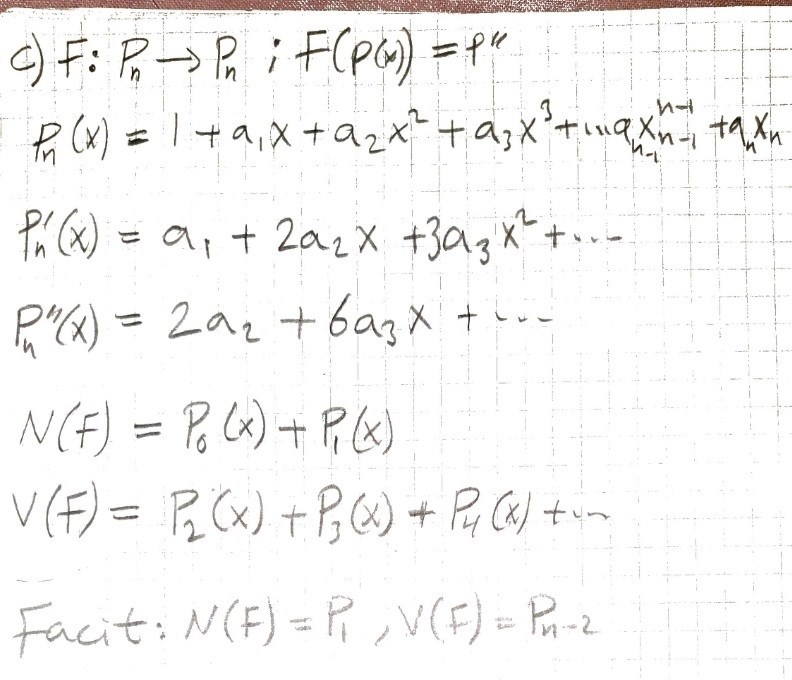 c) F: Pₙ → Pₙ ; F(p(x)) = p''
Pₙ(x) = 1 + a₁x + a₂x² + a₃x³ + ... aₙ₋₁xₙ₋₁ⁿ⁻¹ + aₙxₙ
Pₙ'(x) = a₁ + 2a₂x + 3a₃x² + ...
Pₙ''(x) = 2a₂ + 6a₃x + ...
N(F) = P₀(x) + P₁(x)
V(F) = P₂(x) + P₃(x) + P₄(x) + ...
Facit: N(F) = P₁, V(F) = Pₙ₋₂